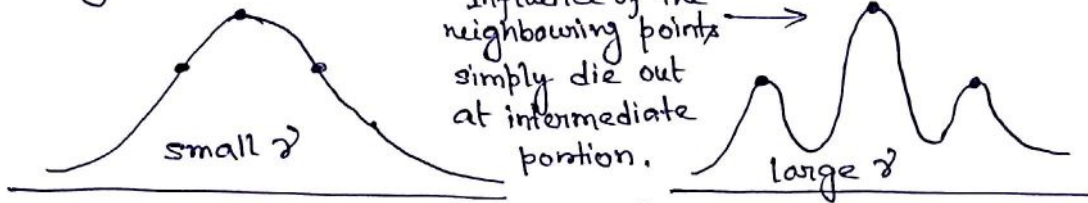 Influence of the
neighbouring points
simply die out
at intermediate
portion.
small γ
large γ